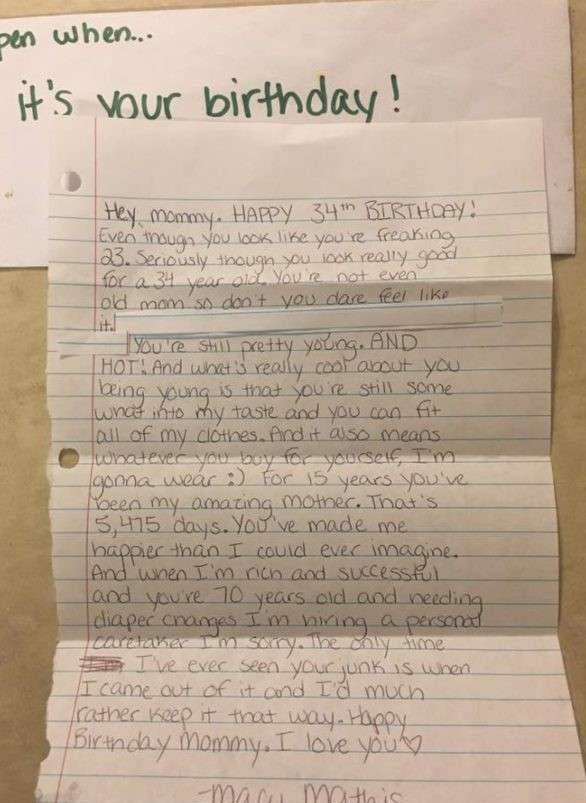 pen when...
it's your birthday!
Hey, mommy. HAPPY 34th BIRTHDAY!
Even though you look like you're freaking
23. Seriously though you look really good
for a 34 year old. You're not even
old mom so don't you dare feel like
it.
You're still pretty young. AND
HOT! And what's really cool about you
being young is that you're still some
what into my taste and you can fit
all of my clothes. And it also means
whatever you buy for yourself, I'm
gonna wear :) For 15 years you've
been my amazing mother. That's
5,475 days. You've made me
happier than I could ever imagine.
And when I'm rich and successful
and you're 70 years old and needing
diaper changes I'm hiring a personal
caretaker I'm sorry. The only time
I've ever seen your junk is when
I came out of it and I'd much
rather keep it that way. Happy
Birthday Mommy. I love you♡
-Macy Mathis